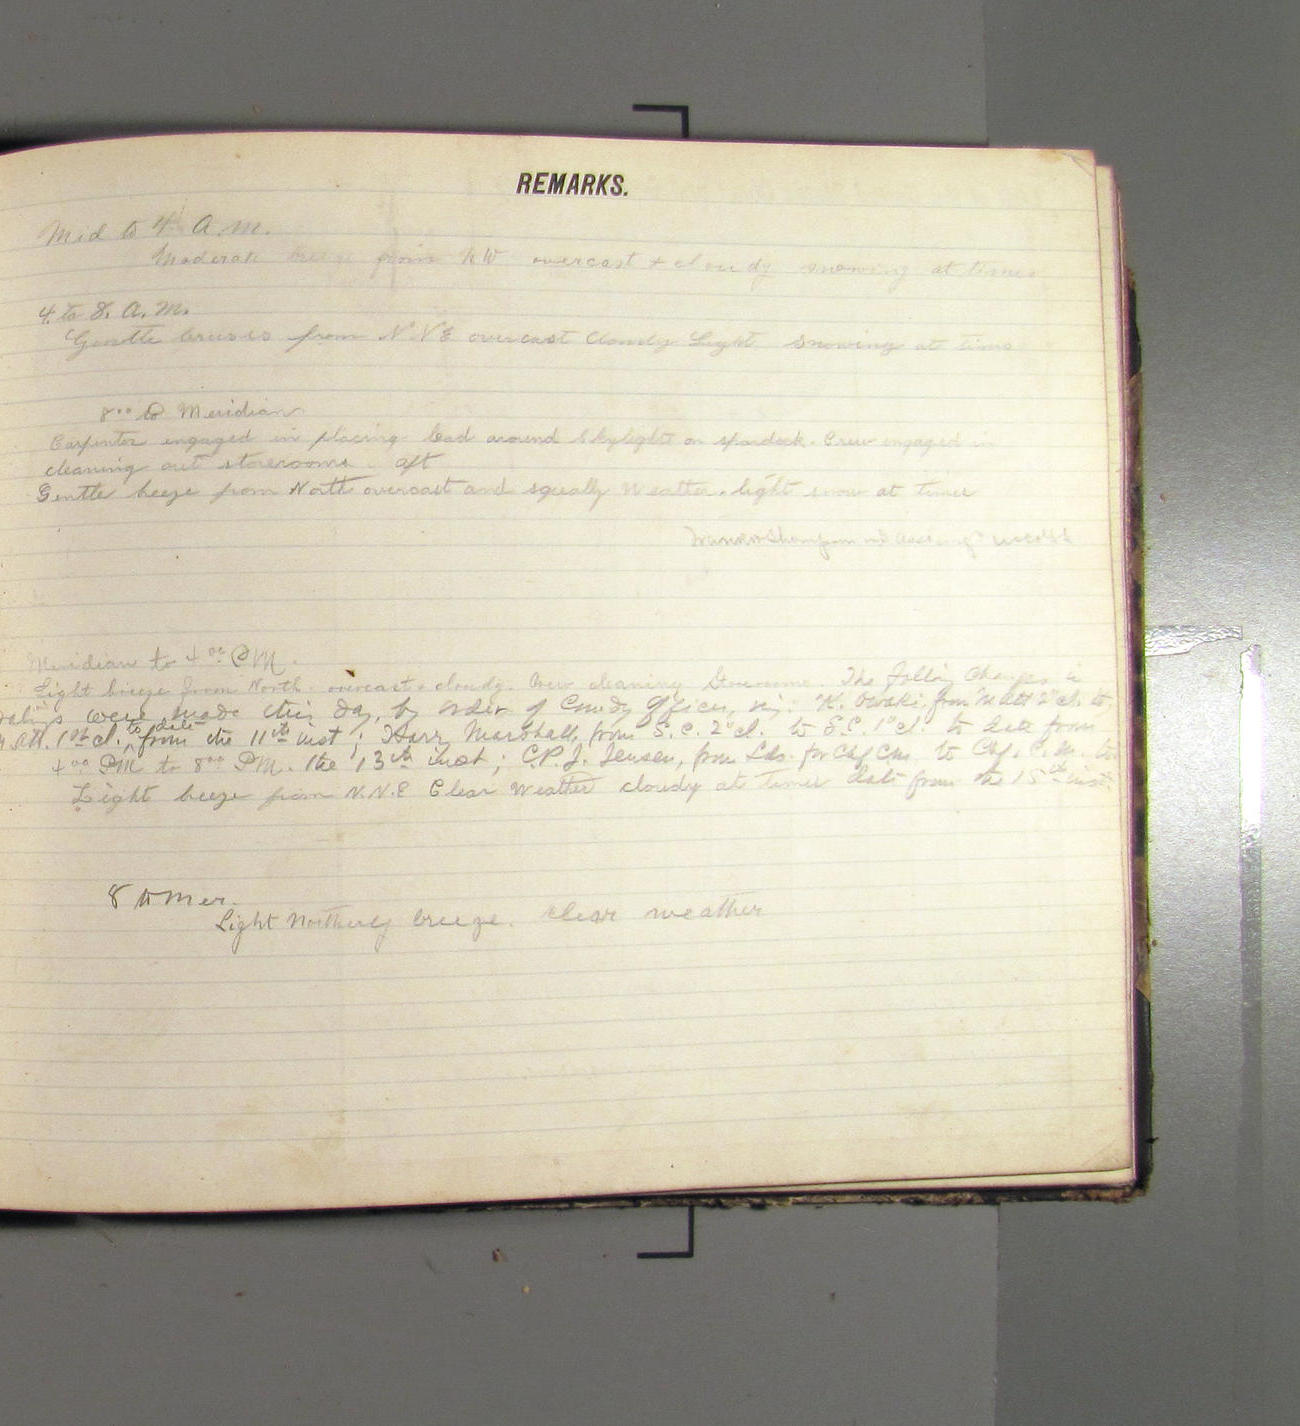 REMARKS.
Mid to 4 A.M.
Moderate breeze from NW overcast + cloudy snowing at times
4 to 8. A.M.
Gentle breeses from N.N.E overcast Cloudy Light snowing at times
8⁰⁰ to Meridian
Carpenter engaged in placing lead around skylight on spardeck. Crew engaged in
cleaning out storerooms aft
Gentle breeze from North overcast and squally Weather. light snow at times
Meridian to 4⁰⁰ P.M.
Light breeze from North. overcast + cloudy. Crew cleaning Storerooms. The Folling Changes in
were made this day, by order of Comdg Officer, viz: K. Owaki, from M Att 2" cl. to
M Att. 1st cl. to date from the 11th inst; Harr Marshall, from S.C. 2" cl. to S.C. 1" cl. to date from
4⁰⁰ PM to 8⁰⁰ PM. the 13th inst; C.P.J. Jensen, from Lds. for Chf Cm to Chf. C.M. to
Light breeze from N.N.E Clear Weather cloudy at times date from the 15th inst.
8 to mer.
Light Northerly breeze. clear weather